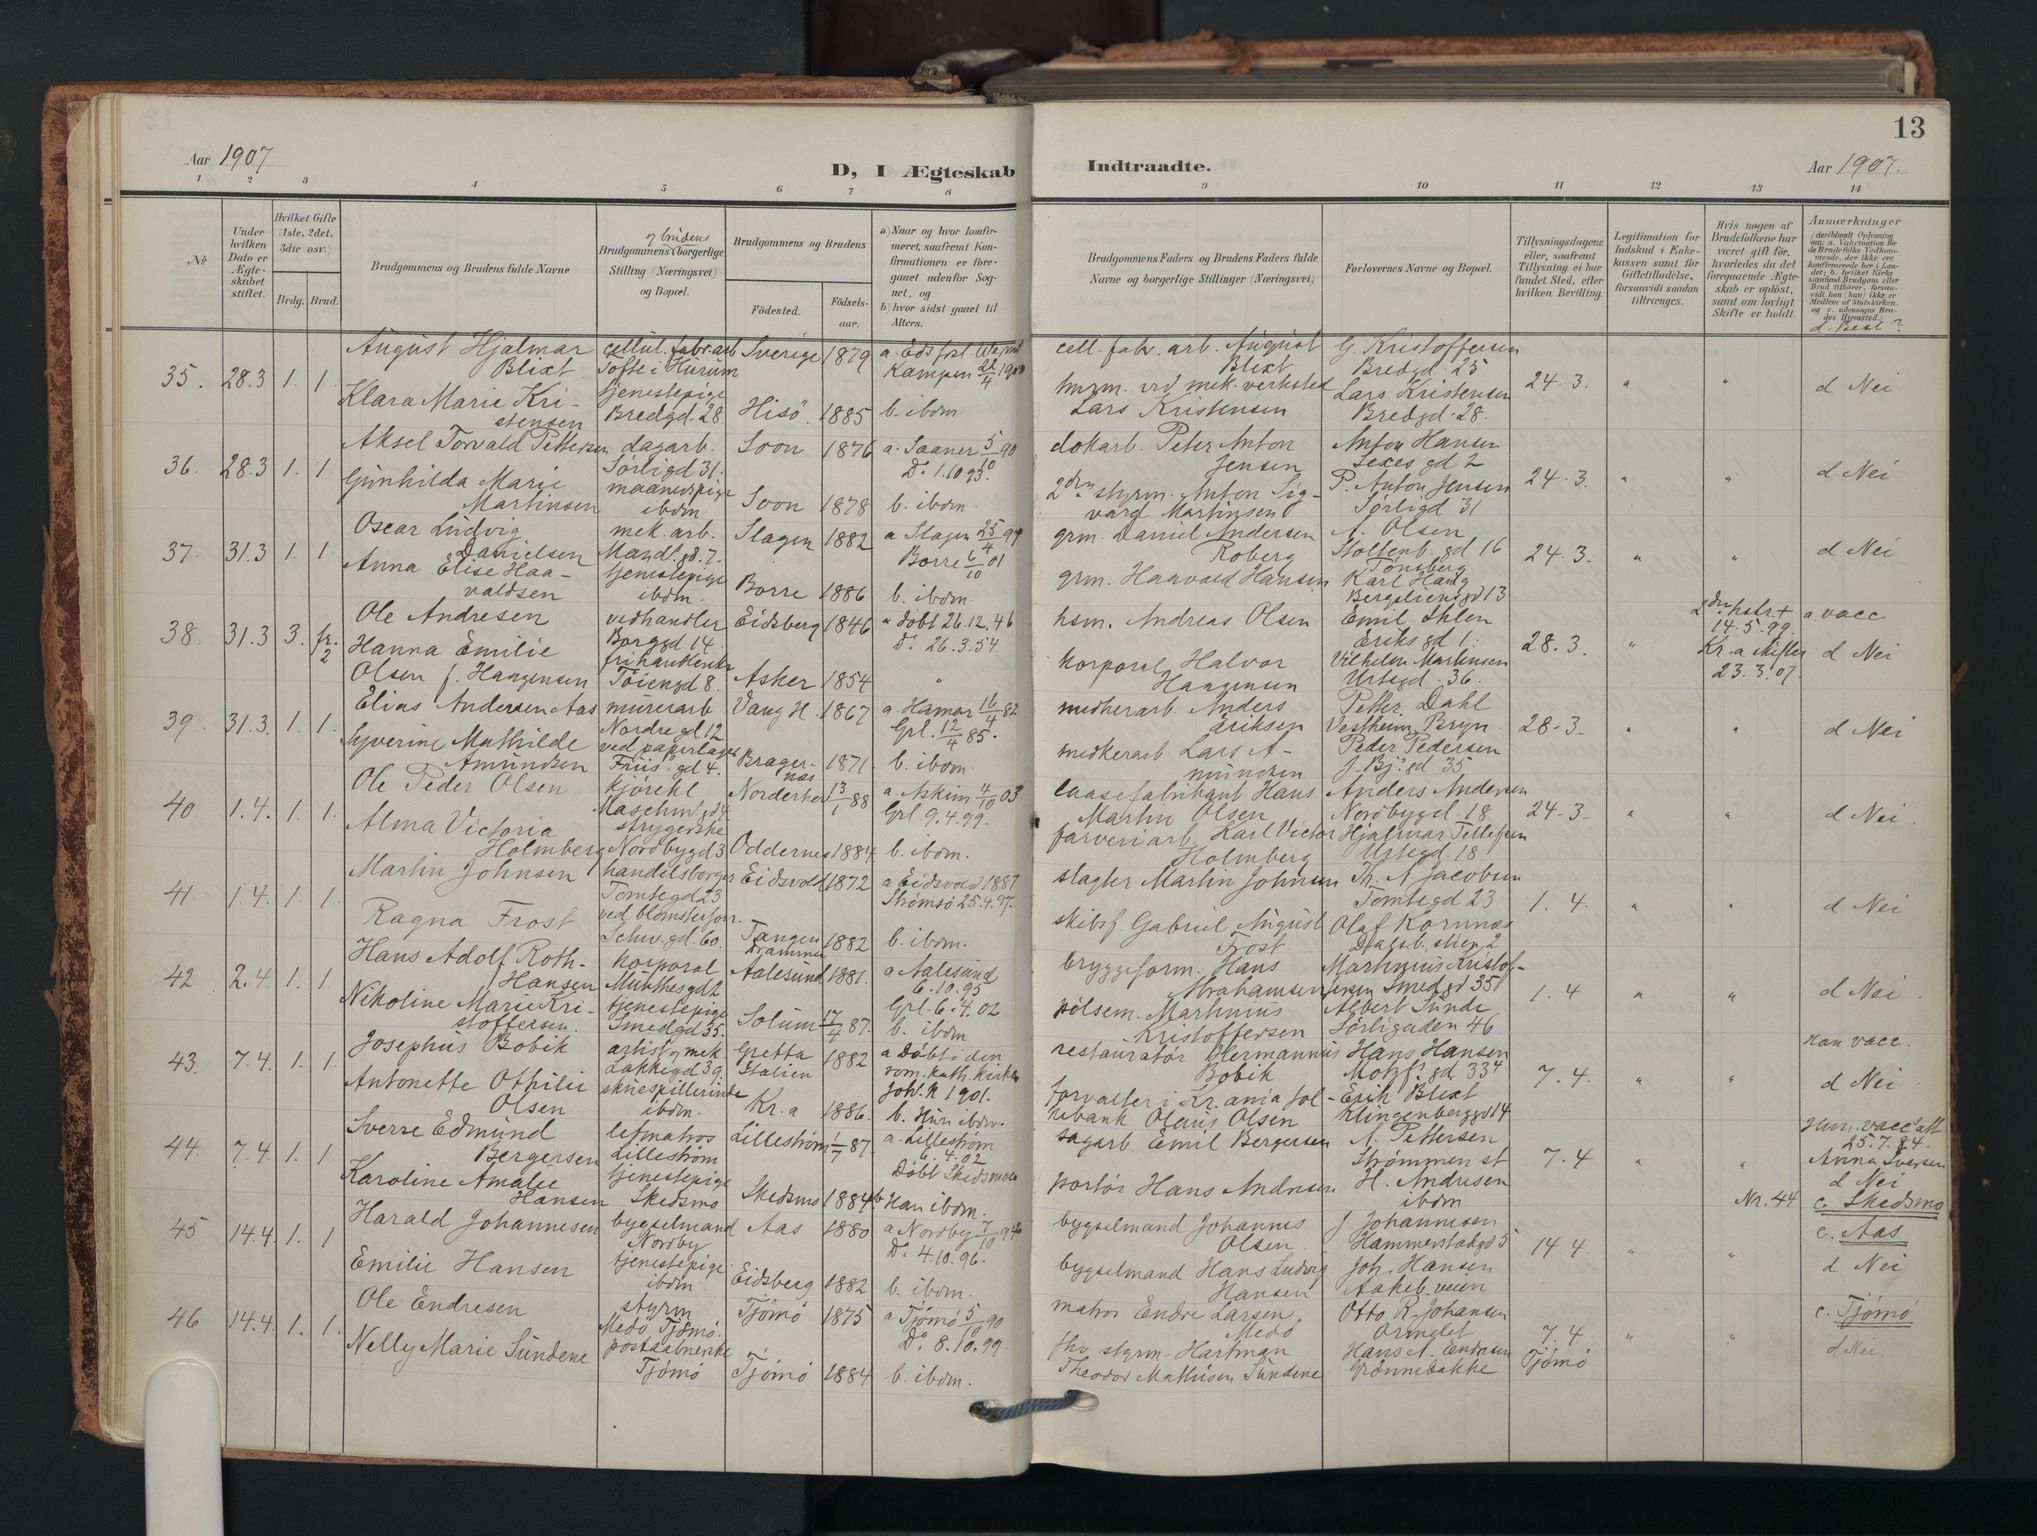 13
Aar 1907
D, I Ægteskab
Indtraadte.
Aar 1907.
1 2 3 4 5 6 7 8
9 10 11 12 13 14
No
Under hvilken Dato er Ægteskabet stiftet.
Hvilket Gifte (1ste, 2det, 3die osv.)
Brdg. Brud.
Brudgommens og Brudens fulde Navne
Brudgommens og brudens borgerlige Stilling (Næringsvei) og Bopæl.
Brudgommens og Brudens
Födested.
Födselsaar.
a) Naar og hvor konfirmeret, saafremt Konfirmationen er foregaaet udenfor Sognet, og
b) hvor sidst gaaet til Alters.
Brudgommens Faders og Brudens Faders fulde Navne og borgerlige Stillinger (Næringsvei)
Forlovernes Navne og Bopæl.
Tillysningsdagene eller, saafremt Tillysning ei har fundet Sted, efter hvilken Bevilling.
Legitimation for Indskud i Enkekassen samt for Giftetilladelse, forsaavidt saadan tiltrænges.
Hvis nogen af Brudefolkene har været gift før, hvorledes da det foregaaende Ægteskab er opløst, samt om lovligt Skifte er holdt.
Anmærkninger
d. Besl.?
35. 28.3 1. 1.
August Hjalmar Blixt
cellul. fabr. arb Tofte i Hurum
Sverige 1879
Kampen 22/4 1900
cell. fabr. arb. August Blixt
G. Kristoffersen Bredgd. 25
24.3. " " d Nei
Klara Marie Kristensen
tjenestepige Bredgd. 28
Hisö 1885 b. ibdm.
hmrm. ved mek. verksted Lars Kristensen
Lars Kristensen Bredgd. 28.
36. 28.3 1. 1.
Aksel Torvald Pettersen
dagarb. Sörligd 31.
Soon 1876
a. Saaner 5/10 90
Do 1.10 93.
dokarb. Peter Anton Jensen
Anton Hansen
24.3. " " d Nei
Gunhilda Marie Martinsen
maanedspige ibdm
Soon 1878 b. ibdm.
2den styrm. Anton Sigvard Martinsen
P. Anton Jensen Sörligd 31
37. 31.3 1. 1
Oscar Ludvig Danielsen
mek. arb. Mandl. gd. 7.
Slagen 1882
a Slagen 25/4 99
Borre 6/10 01
grm. Daniel Andersen Roberg
A. Olsen Stoltenb. gd 16 Tönsberg
24.3. " " d Nei
Anna Elise Haavaldsen
tjenestepige ibdm.
Borre 1886 b. ibdm.
grm. Haavald Hansen
Karl Haug Bergsliensgd 13
38. 31.3 3. fr. 2
Ole Andresen
vedhandler Borggd 14.
Eidsberg 1846
a döbt 26.12.46
Do 26.3.54.
hsm. Andreas Olsen
Emil Ihlen Eriks gd 1.
28.3. "
2den hstr. + 14.5.99
Kr.a skifter 23.3.07.
a. vacc
d Nei
Hanna Emilie Olsen f. Haagensen
Töiengd 8.
Asker 1854 "
korporal Halvor Haagensen
Vilhelm Martinsen Urtegd. 36.
39. 31.3. 1. 1.
Elias Andersen Aas
murerarb Nordregd 12
Vang H. 1867
a. Hamar 16/4 82
Gpl. 12/4 85.
Anders Eriksen
Petter Dahl Vestheim, Bryn.
28-3- " " d Nei
Syverine Mathilde Amundsen
ved papirlager Friis. gd 4.
Bragernæs 1871. b. ibdm
Lars Amundsen
Peder Pedersen J. Bj. gd 35
40. 1.4. 1. 1.
Ole Peder Olsen
kjörekl
Norderhov 13/1 88
a. Askim 4/10 03
Gpl 9.4.99.
laasefabrikant Hans Martin Olsen
Anders Andersen Nordbygd. 18
24-3- " " d Nei.
Alma Victoria Holmberg
strygerske Nordbygd 3
Oddernes 1884 b. ibdm.
farveriarb Karl Victor Holmberg
Hjalmar Tellefsen Urtegd. 18
41. 1.4. 1. 1.
Martin Johnsen
handelsborger Tomtegd 23
Eidsvold 1872
a Eidsvold 1887
Strömsö 25.4.97.
slagter Martin Johnsen
Th. A. Jacobsen Tomtegd 23
1.4. " " d Nei
Ragna Frost
ved blomsterforr. Schw. gd. 60.
Tangen Drammen 1882 b. ibdm.
skibsf. Gabriel August Frost.
Olaf Kornnæs
42. 2.4. 1. 1
Hans Adolf Roth-Hansen
korporal Munthesgd 2
Aalesund 1881.
a Aalesund 6.10.95
Gpl. 6.4.02
bryggeform. Hans Abrahamsen
Marthinius Kristoffersen Smedgd 35
1.4 " " d Nei.
Nikoline Marie Kristoffersen.
tjenestepige Smedgd 35.
Solum 17/4 87. b. ibdm
pölsem. Marthinius Kristoffersen
Albert Sunde Sörligaden 46
43. 7.4. 1. 1.
Josephus Bobik
artist og mek. Lakkegd 39.
Gretta Italien 1882
a Döbt i den rom. kath. kirke
Joh. K 1901.
restauratör Hermannus Bobik
Hans Hansen
7.4. " "
Han vacc.
d Nei
Antonette Othilie Olsen
skuespillerinde ibdm.
Kr.a 1886. b. Hun ibdm.
forvalter i Kr.ania folkebank Olaus Olsen
Erik Blixt Klingenberggd 14
44. 7.4. 1. 1.
Sverre Edmund Bergersen
letmatros Lilleström
Lilleström 1/7 87.
a. Lilleström 6.4.02
Döbt Skedsmo
sagarb Emil Bergersen
A. Pettersen Strömmen st
7.4 " "
Hun. vacc. att 25.7.84.
Anna Iversen
d Nei
Karoline Amalie Hansen
tjenestepige Skedsmo
Skedsmo 1884 b Han ibdm.
portör Hans Andresen
H. Andresen ibdm
Nr. 44 c. Skedsmo
45 14.4. 1. 1
Harald Johannesen
bygselmand Nordby
Aas 1880
a Nordby 7/10 94
Do 4.10.96.
bygselmand Johannes Olsen
J. Johannesen Hammerstadgd 5
14.4. " "
c. Aas
d Nei
Emilie Hansen
tjenestepige ibdm
Eidsberg 1882 b. ibdm.
bygselmand Hans Ludvig Hansen
Joh. Hansen Aakeb. veien
46 14.4. 1. 1.
Ole Endresen
styrm Medö Tjömö.
Tjömö 1875
a Tjömö 5/10 90
Do 8.10.99.
matros Endre Larsen, Medö
Otto R. Johansen Ormelet
7.4 Tjömö " "
c. Tjömö
d Nei.
Nelly Marie Sundene
postaabnerske Tjömö
Tjömö 1884 b. ibdm.
fhv. styrm. Hartman Theodor Mathisen Sundene
Hans A. Endresen Grönnebakke